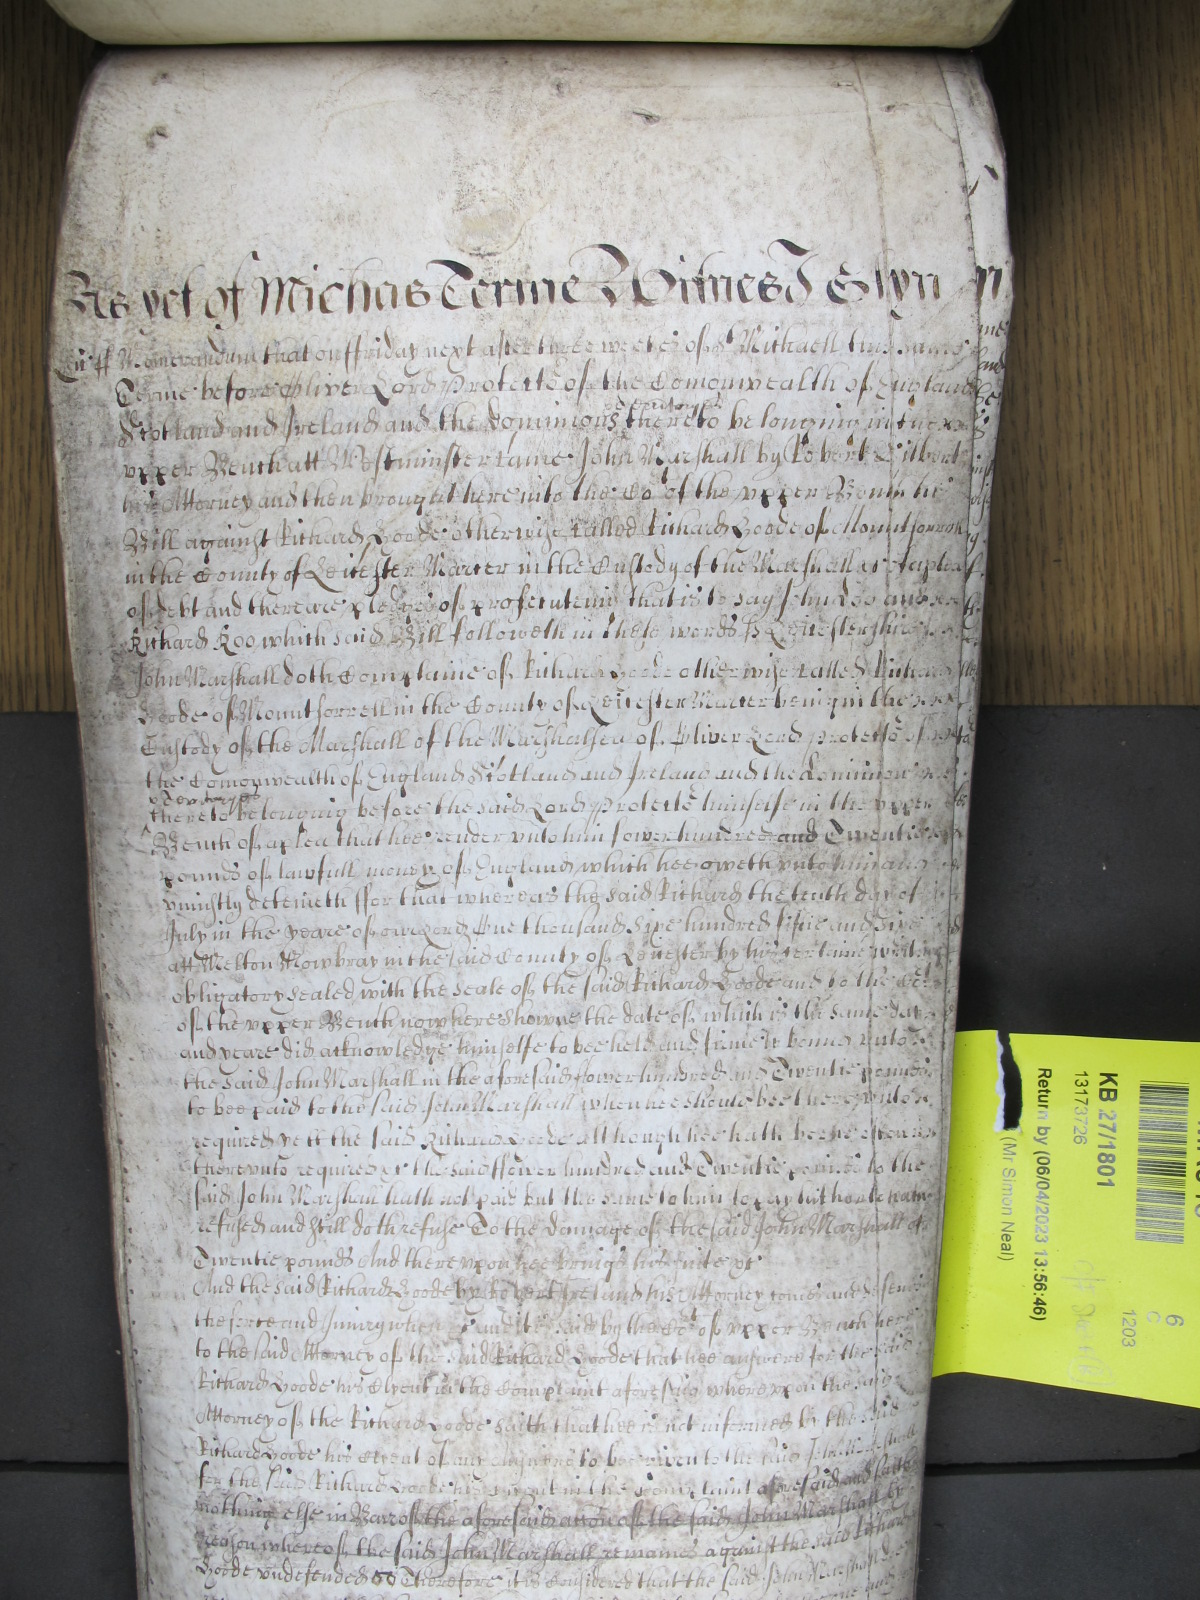 As yet of Michas Terme Witnes J Glyn
Leic ss Memorandum that on ffriday next after three weekes of St Michaell this same
Terme before Oliver Lord Protector of the Comonwealth of England
Scotland and Ireland and the dominions & territoryes thereto belonging in the
upper Bench att Westminster came John Marshall by Robert Gilbert
his Attorney and then brought here into the Cort of the upper Bench his
Bill against Richard Goode otherwise called Richard Goode of Mountsorrell
in the County of Leicester Marcer in the Custody of the Marshall &c of a plea
of debt and there are pledges of prosecuteing that is to say John Doo and
Richard Roo which said Bill followeth in these words ss Leicestershire
John Marshall doth Complaine of Richard Goode otherwise called Richard
Goode of Mountsorrell in the County of Leicester Marcer being in the
Custody of the Marshall of the Marshalsea of Oliver Lord Protector of
the Comonwealth of England Scotland and Ireland and the dominions
& territoryes
thereto belonging before the said Lord Protector himselfe in the upper
Bench of a plea that hee render unto him fower hundred and Twentie
pounds of lawfull money of England which hee oweth unto him and
uniustly deteineth ffor that whereas the said Richard the tenth day of
July in the yeare of our Lord One thousand Six hundred fiftie and Six
att Melton Mowbray in the said County of Leicester by his certaine writing
obligatory sealed with the seale of the said Richard Goode and to the Cort
of the upper Bench now here showne the date of which is the same day
and yeare did acknowledge himselfe to bee held and firmely bound unto
the said John Marshall in the aforesaid ffower hundred and Twentie pounds
to bee paid to the said John Marshall when hee should bee thereunto
required yett the said Richard Goode although hee hath beene often
thereunto required &c the said ffower hundred and Twentie pounds to the
said John Marshall hath not paid but the same to him to pay hitherto hath
refused and still doth refuse To the damage of the said John Marshall of
Twentie pounds And thereupon hee brings his suite &c
And the said Richard Goode by Robert Ireland his Attorney comes and defends
the force and Iniury when &c and it is said by the Cort of upper Bench here
to the said Attorney of the said Richard Goode that hee answere for the said
Richard Goode his Clyent in the Complaint aforesaid whereupon the said
Attorney of the Richard Goode saith that hee is not informed by the said
Richard Goode his Clyent of any answere to bee given to the said John Marshall
for the said Richard Goode his Clyent in the Complaint aforesaid and saith
nothing else in Barr of the aforesaid accon of the said John Marshall by
reason whereof the said John Marshall remaines against the said Richard
Goode undefended &c Therefore it is Considered that the said John Marshall
KB 27/1801
13173726
Return by (06/04/2023 13:56:46)
(Mr Simon Neal)
6
C
1203